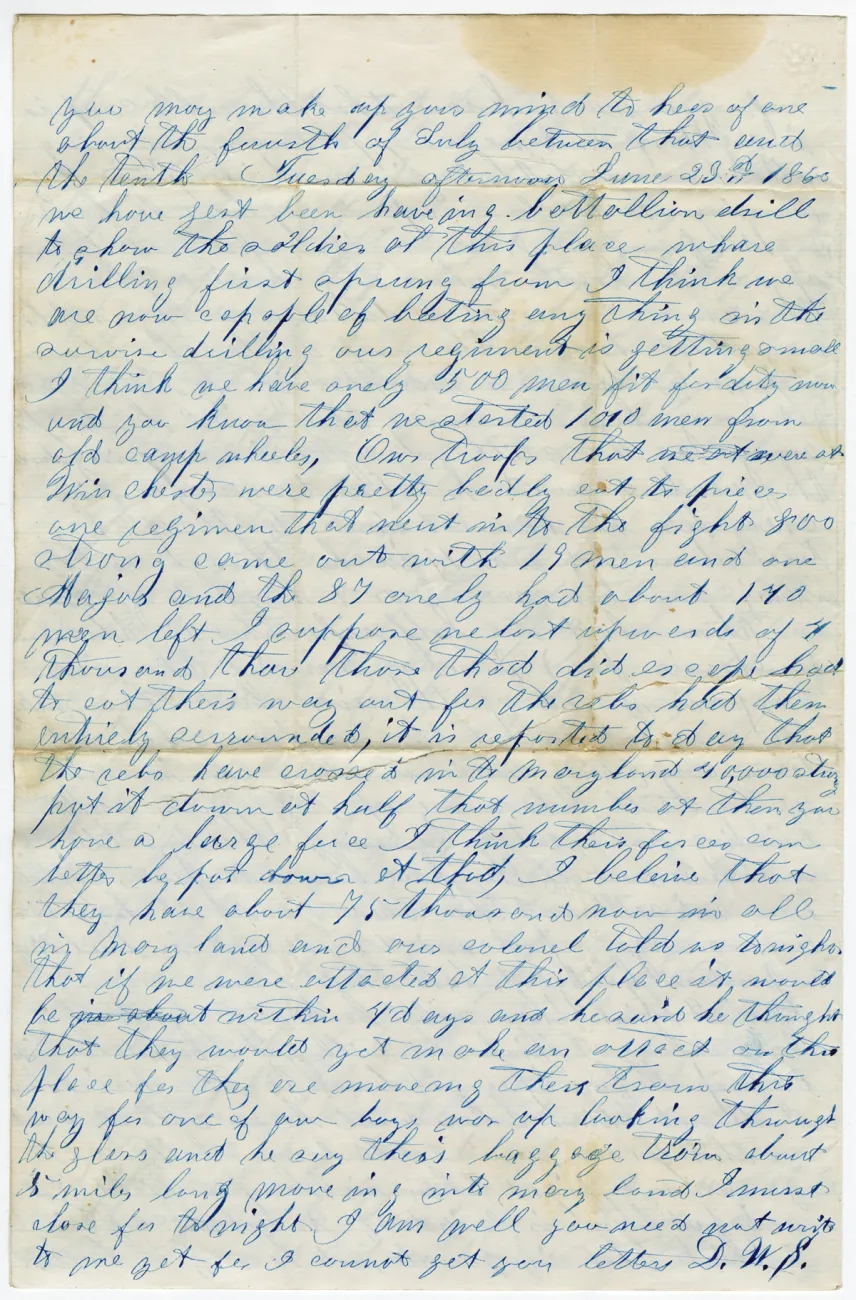 you may make up your mind to heer of one
about the fourth of July between that and
the tenth Tuesday afternoon June 23rd 186
we have jest been have ing battallion drill
to show the soldier at this place whare
drilling first sprung from I think we
are now capable of beeting any thing in the
survise drilling our regiment is getting small
I think we have onely 500 men fit for duty now
and you know that we started 1010 men from
old camp wheeler, Our troops that were at
Winchester were pretty badly cut to pieces
one regimen that went in to the fight 800
strong came out with 19 men and one
Major and the 87 onely had about 170
men left I suppose we lost upwards of 4
thousand thare those thad did escape had
to cut their way out for the rebs had them
entirely surrounded, it is reported to day that
the rebs have crossed in to maryland 40,000 strong
put it down at half that number at then you
have a large force I think their forces can
better be put down at that, I beleive that
they have about 75 thousand now in all
in mary land and our colonel told us tonight
that if we were attacted at this place it would
be in about within 4 days and he said he thought
that they would yet make an attact on this
place for they are moveing there train this
way for one of our boys was up looking through
the glass and he say their baggage train about
5 miles long move ing into mary land I must
close for to night I am well you need not write
to me yet for I cannot get you letters D. W. S.